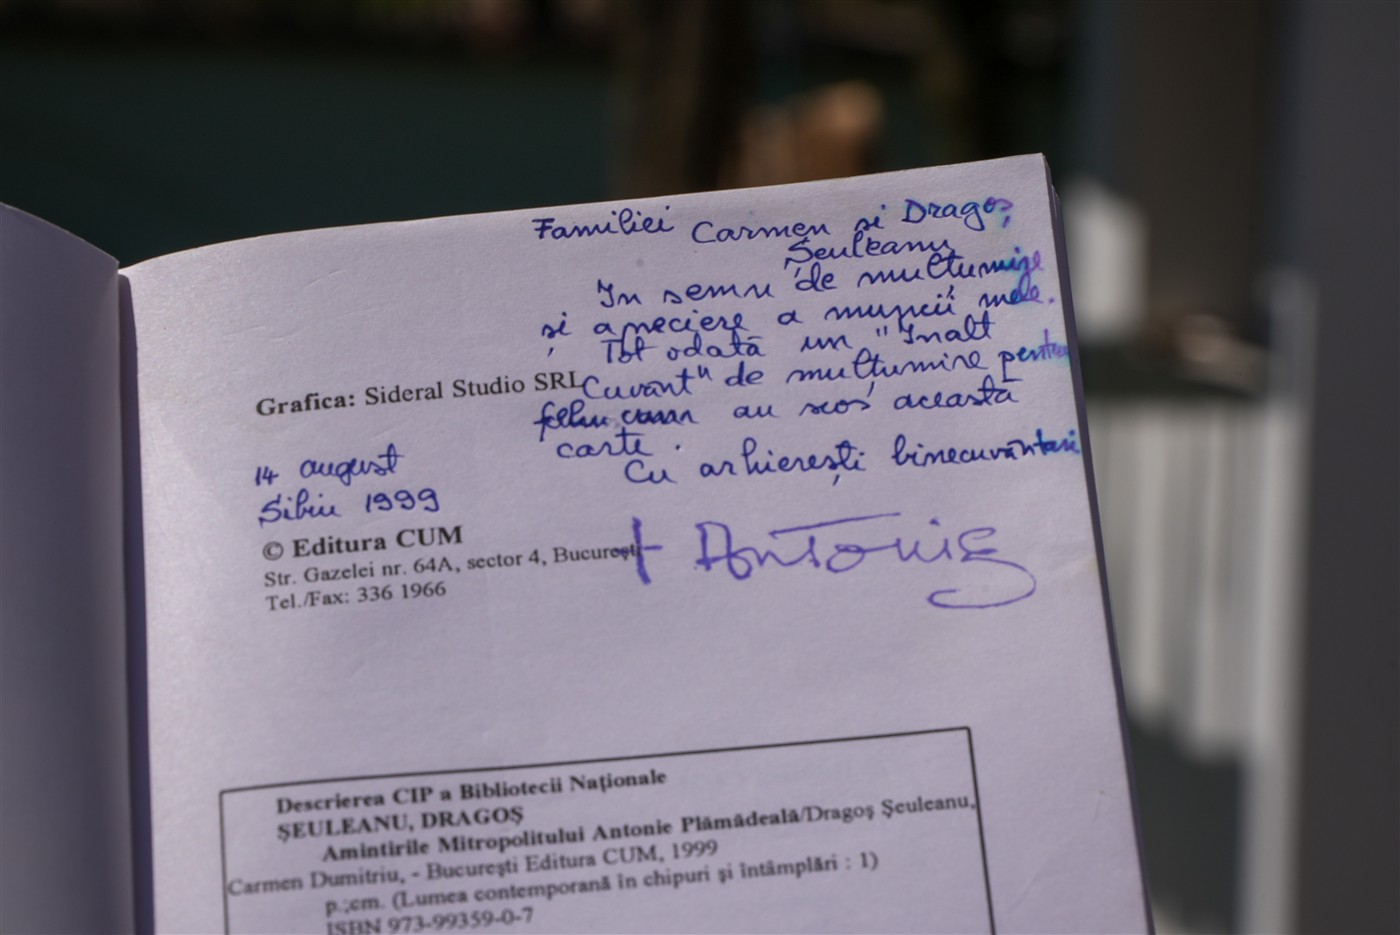 Familiei Carmen și Dragoș
Șeuleanu,
In semn de mulțumire
și apreciere a muncii mele.
Tot odată un "Inalt
Cuvânt" de mulțumire pentru
felul cum au scos această
carte.
Cu arhierești binecuvântări
† Antonie
Grafica: Sideral Studio SRL
14 august
Sibiu 1999
© Editura CUM
Str. Gazelei nr. 64A, sector 4, București
Tel./Fax: 336 1966
Descrierea CIP a Bibliotecii Naționale
ȘEULEANU, DRAGOȘ
Amintirile Mitropolitului Antonie Plămădeală/Dragoș Șeuleanu,
Carmen Dumitriu, - București Editura CUM, 1999
p.;cm. (Lumea contemporană în chipuri și întâmplări : 1)
ISBN 973-99359-0-7